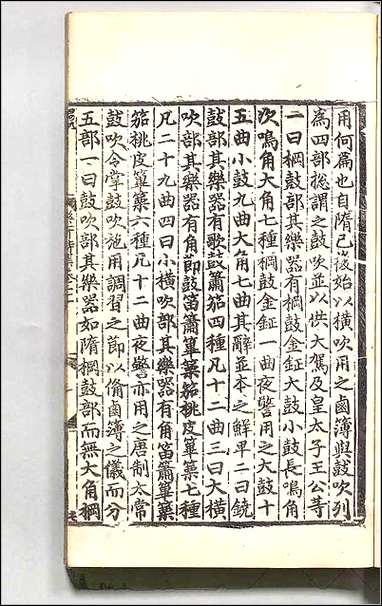 用何篇也自隋已後始以横吹用之鹵簿與鼓吹列
為四部揔謂之鼓吹並以供大駕及皇太子王公等
一曰棡鼓部其樂器有棡鼓金鉦大鼓小鼓長鳴角
次鳴角大角七種棡鼓金鉦一曲夜警用之大鼓十
五曲小鼓九曲大角七曲其辭並本之鮮卑二曰鐃
鼓部其樂器有歌鼓簫笳四種凡十二曲三曰大横
吹部其樂器有角節鼓笛簫篳篥笳桃皮篳篥七種
凡二十九曲四曰小横吹部其樂器有角笛簫篳篥
笳桃皮篳篥六種凡十二曲夜警亦用之唐制太常
鼓吹令掌鼓吹施用調習之節以俻鹵簿之儀而分
五部一曰鼓吹部其樂器如隋棡鼓部而無大角棡